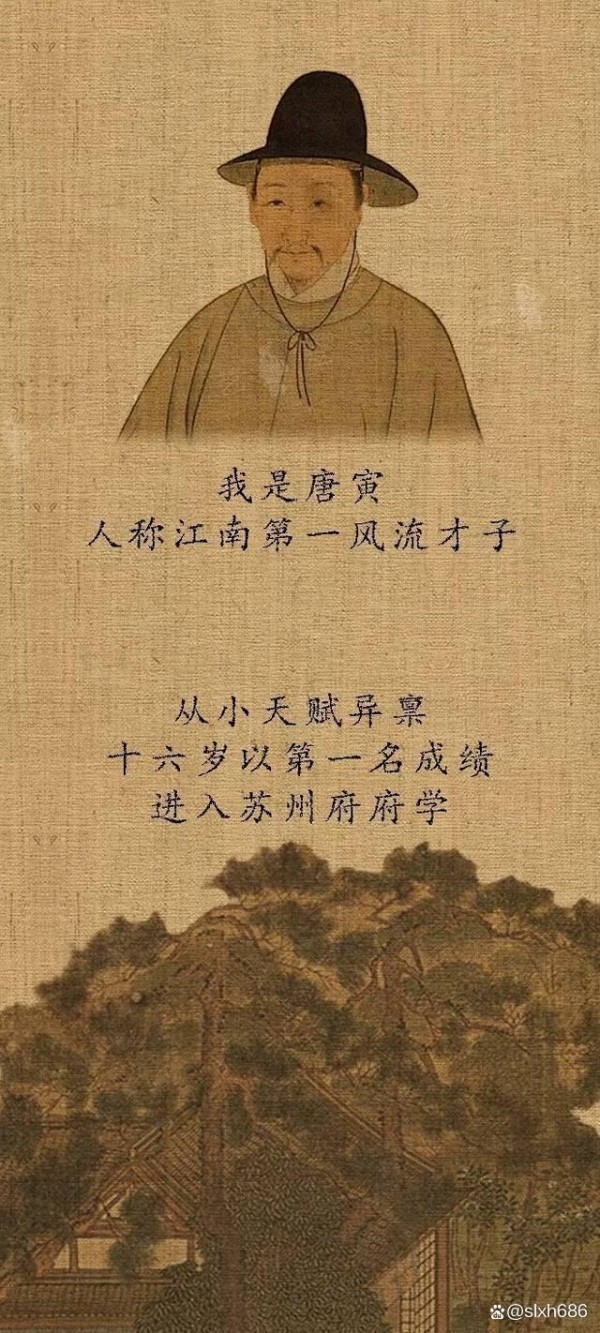 我是唐寅
人称江南第一风流才子
从小天赋异禀
十六岁以第一名成绩
进入苏州府府学
@slxh686